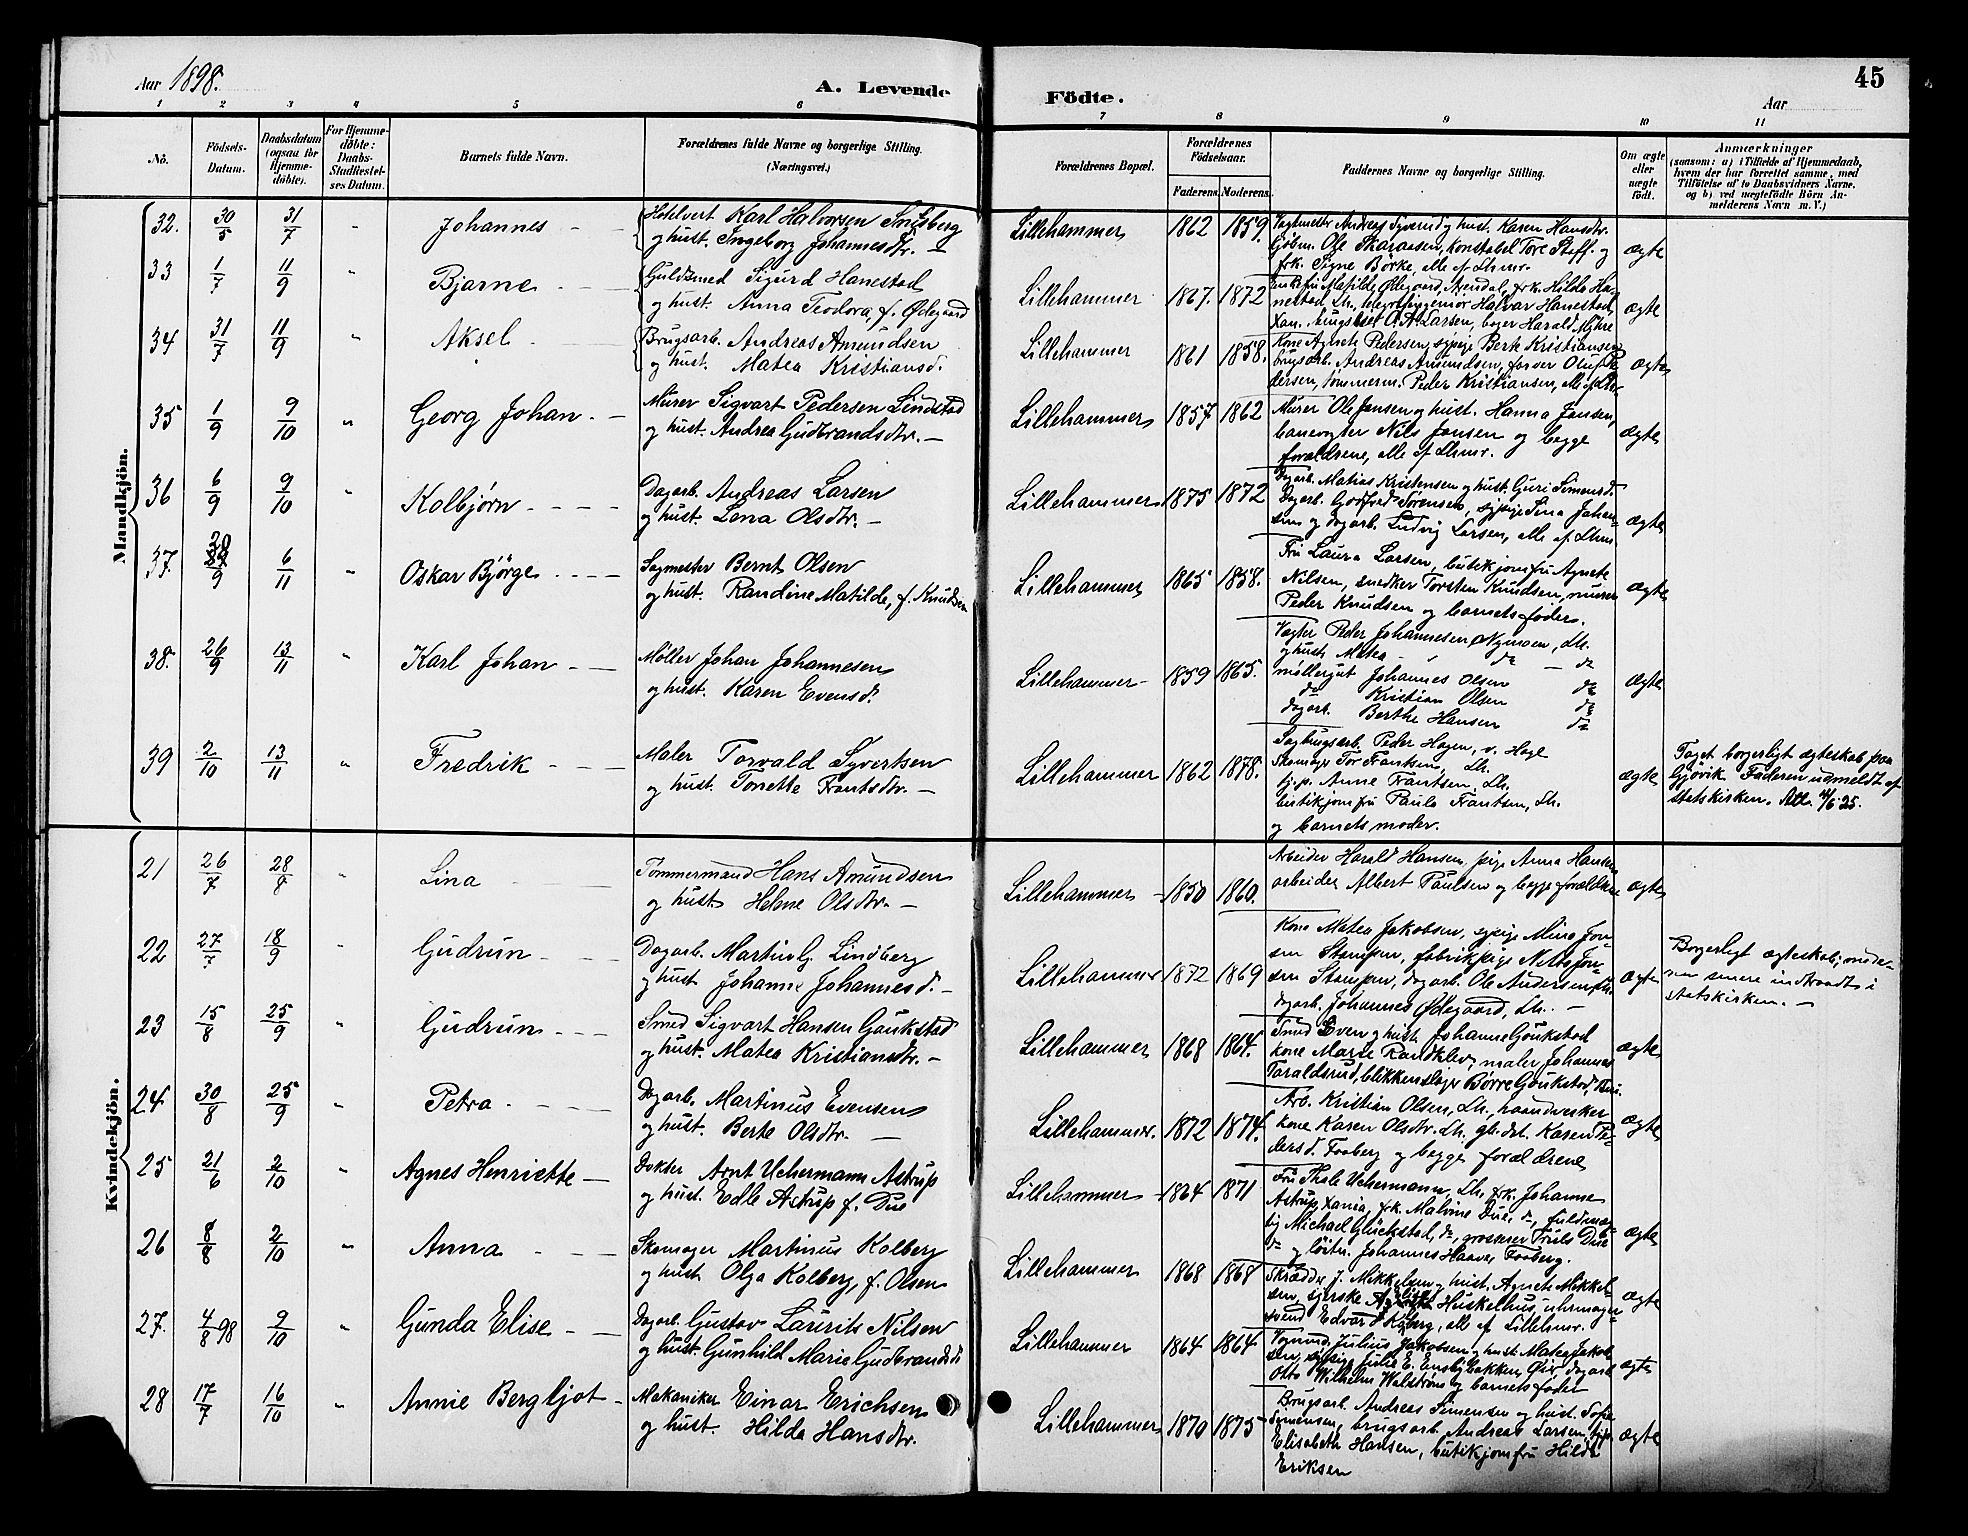 45
Aar 1898.
A. Levende Födte.
Aar
1 2 3 4 5 6 7 8 9 10 11
No.
Födsels-Datum.
Daabsdatum (ogsaa for Hjemme-döbte).
For Hjemme-döbte: Daabs-Stadfæstel-ses Datum.
Barnets fulde Navn.
Forældrenes fulde Navne og borgerlige Stilling.
(Næringsvei.)
Forældrenes Bopæl.
Forældrenes Födselsaar.
Faderens. Moderens.
Faddernes Navne og borgerlige Stilling.
Om ægte eller uægte födt.
Anmærkninger
(saasom: a) i Tilfælde af Hjemmedaab,
hvem der har forrettet samme, med
Tilföielse af to Daabsvidners Navne,
og b) ved uægtefödte Börn An-
melderens Navn m. V.)
Mandkjön.
32. 30/5 31/7 " Johannes
Karl Halvorsen
og hust. Ingeborg Johannesdtr.
Lillehammer 1862 1859.
Vagtmester Andreas og hust. Karen Hansdtr.
Ole Skaraasen, konstabel Tore Steff. og
frk. Signe Börke, alle af Lhmr.
ægte
33 1/7 11/9 " Bjarne
Guldsmed Sigurd Hanestad
og hust. Anna Teodora, f. Ødegaard
Lillehammer 1867. 1872
Enkefru Matilde Ødegaard, Arendal, frk. Hilda Ha-
nestad Lh., ingeniør Halvar Hanestad,
O. A. Larsen, bager Harald Myhre
ægte
34 31/7 11/9 " Aksel
Brugsarb. Andreas Amundsen
og hust. Matea Kristiansd.
Lillehammer 1861 1858.
Kone Agnete Pedersen, sypige Berte Kristiansen
brugsarb. Andreas Amundsen, farver Oluf Pe-
dersen, tømmerm. Peder Kristiansen, alle af Lhmr.
ægte
35 1/9 9/10 " Georg Johan.
Murer Sigvart Pedersen Lindstad
og hust. Andrea Gudbrandsdtr.
Lillehammer 1857 1862
Murer Ole Jansen og hust. Hanna Jansen,
banevogter Nils Jansen og begge
forældrene, alle af Lhmr.
ægte
36 6/9 9/10 " Kolbjørn
Dagarb. Andreas Larsen
og hust. Lena Olsdtr.
Lillehammer 1875 1872
Dagarb. Matias Kristensen og hust. Guri Simensd.
Dagarb. Godtfred Sørensen, sypige Lina Johan-
sen og dagarb. Ludvig Larsen, alle af Lhmr.
ægte
37. 20/9 6/11 " Oskar Bjørge
Sagmester Bernt Olsen
og hust. Randine Matilde, f. Knudsen
Lillehammer 1865 1858.
Fru Laura Larsen, butikjomfru Agnete
Nilsen, snedker Torsten Knudsen, murer
Peder Knudsen og barnets fader.
ægte
38. 26/9 13/11 " Karl Johan
Møller Johan Johannesen
og hust. Karen Evensd.
Lillehammer 1859 1865.
Vogter Peder Johannesen Nymoen, Lh.
og hust. Matea do do
møllergut Johannes Olsen do
do Kristian Olsen do
dagarb. Berthe Hansen do
ægte
39 2/10 13/11 " Fredrik
Maler Torvald Syvertsen
og hust. Tonette Frantsdtr.
Lillehammer 1862 1878.
Sagbrugsarb. Peder Hagen, v. Hage
Skomager Tor Frantsen, Lh.
tj.p. Anne Frantsen, Lh.
butikjomfru Paula Frantsen, Lh.
og barnets moder.
ægte
Taget borgerligt ægteskab paa
Gjøvik. Faderen udmeldt af
statskirken.
Kvindekjön.
21 26/7 28/8 " Lina
Tømmermand Hans Amundsen
og hust. Helene Olsdtr.
Lillehammer 1850 1860.
Arbeider Harald Hansen, pige Anna Hansen
arbeider Albert Paulsen og begge forældrene
ægte
22 27/7 18/9 " Gudrun
Dagarb. Martin G. Lindberg
og hust. Johanne Johannesd.
Lillehammer 1872 1869
Kone Matea Jakobsen, sypige Mina Jon-
sen Stampen, fabrikpige Nella Jon-
sen Stampen, dagarb. Ole Andersen
dagarb. Johannes Ødegaard, Lh.
ægte
Borgerligt ægteskab; mode-
ren senere indtraadt i
statskirken.
23 15/8 25/9 " Gudrun
Smed Sigvart Hansen Gaukstad
og hust. Matea Kristiansdtr.
Lillehammer 1868 1864.
Smed Even og hust. Johanne Gaukstad
kone Marie Randklev, maler Johannes
Taraldsrud, blikkenslager Börre Gaukstad,
ægte
24 30/8 25/9 " Petra
Dagarb. Martinus Evensen
og hust. Berte Olsdtr.
Lillehammer. 1872 1874.
Arb. Kristian Olsen, Lh., haandverker
kone Karen Olsdtr. Lh. Karen Pe-
dersd. Faaberg og begge forældrene
ægte
25 21/6 2/10 " Agnes Henriette
Doktor Arnt Uchermann Astrup
og hust. Edle Astrup f. Due
Lillehammer 1864 1871
Fru Thale Uchermann, Lh. frk. Johanne
Astrup, Xania, frk. Malvine Due, do, fuldmæg-
tig Michael Glückstad, do, grosserer Truls Due
do og löitn. Johannes Haave Faaberg.
ægte
26 8/8 2/10 " Anna
Skomager Martinus Kolberg
og hust. Olga Kolberg, f. Olsen
Lillehammer 1868 1868
Skrædder J. Mikkelsen og hust. Agnete Mikkel-
sen, syerske Huskelhus, uhrmager-
svend Edvard Kolberg, alle af Lillehmr.
ægte
27. 4/8 98 9/10 " Gunda Elise
Dagarb. Gustav Laurits Nilsen
og hust. Gunhild Marie Gudbrandsd.
Lillehammer 1864 1864
Julius Jakobsen og hust. Matea Jakob-
sen, sypige Julie E. Ensbybakken, Øier, dagarb.
Otto Wilhelm Walstrøm og barnets fader
ægte
28 17/7 16/10 " Annie Bergljot
Mekaniker Einar Erichsen
og hust. Hilda Hansdtr.
Lillehammer 1870 1875
Brugsarb. Andreas Simensen og hust. Sofie
Simensen, brugsarb. Andreas Larsen,
Elisabeth Hansen, butikjomfru Hilda
Eriksen
ægte